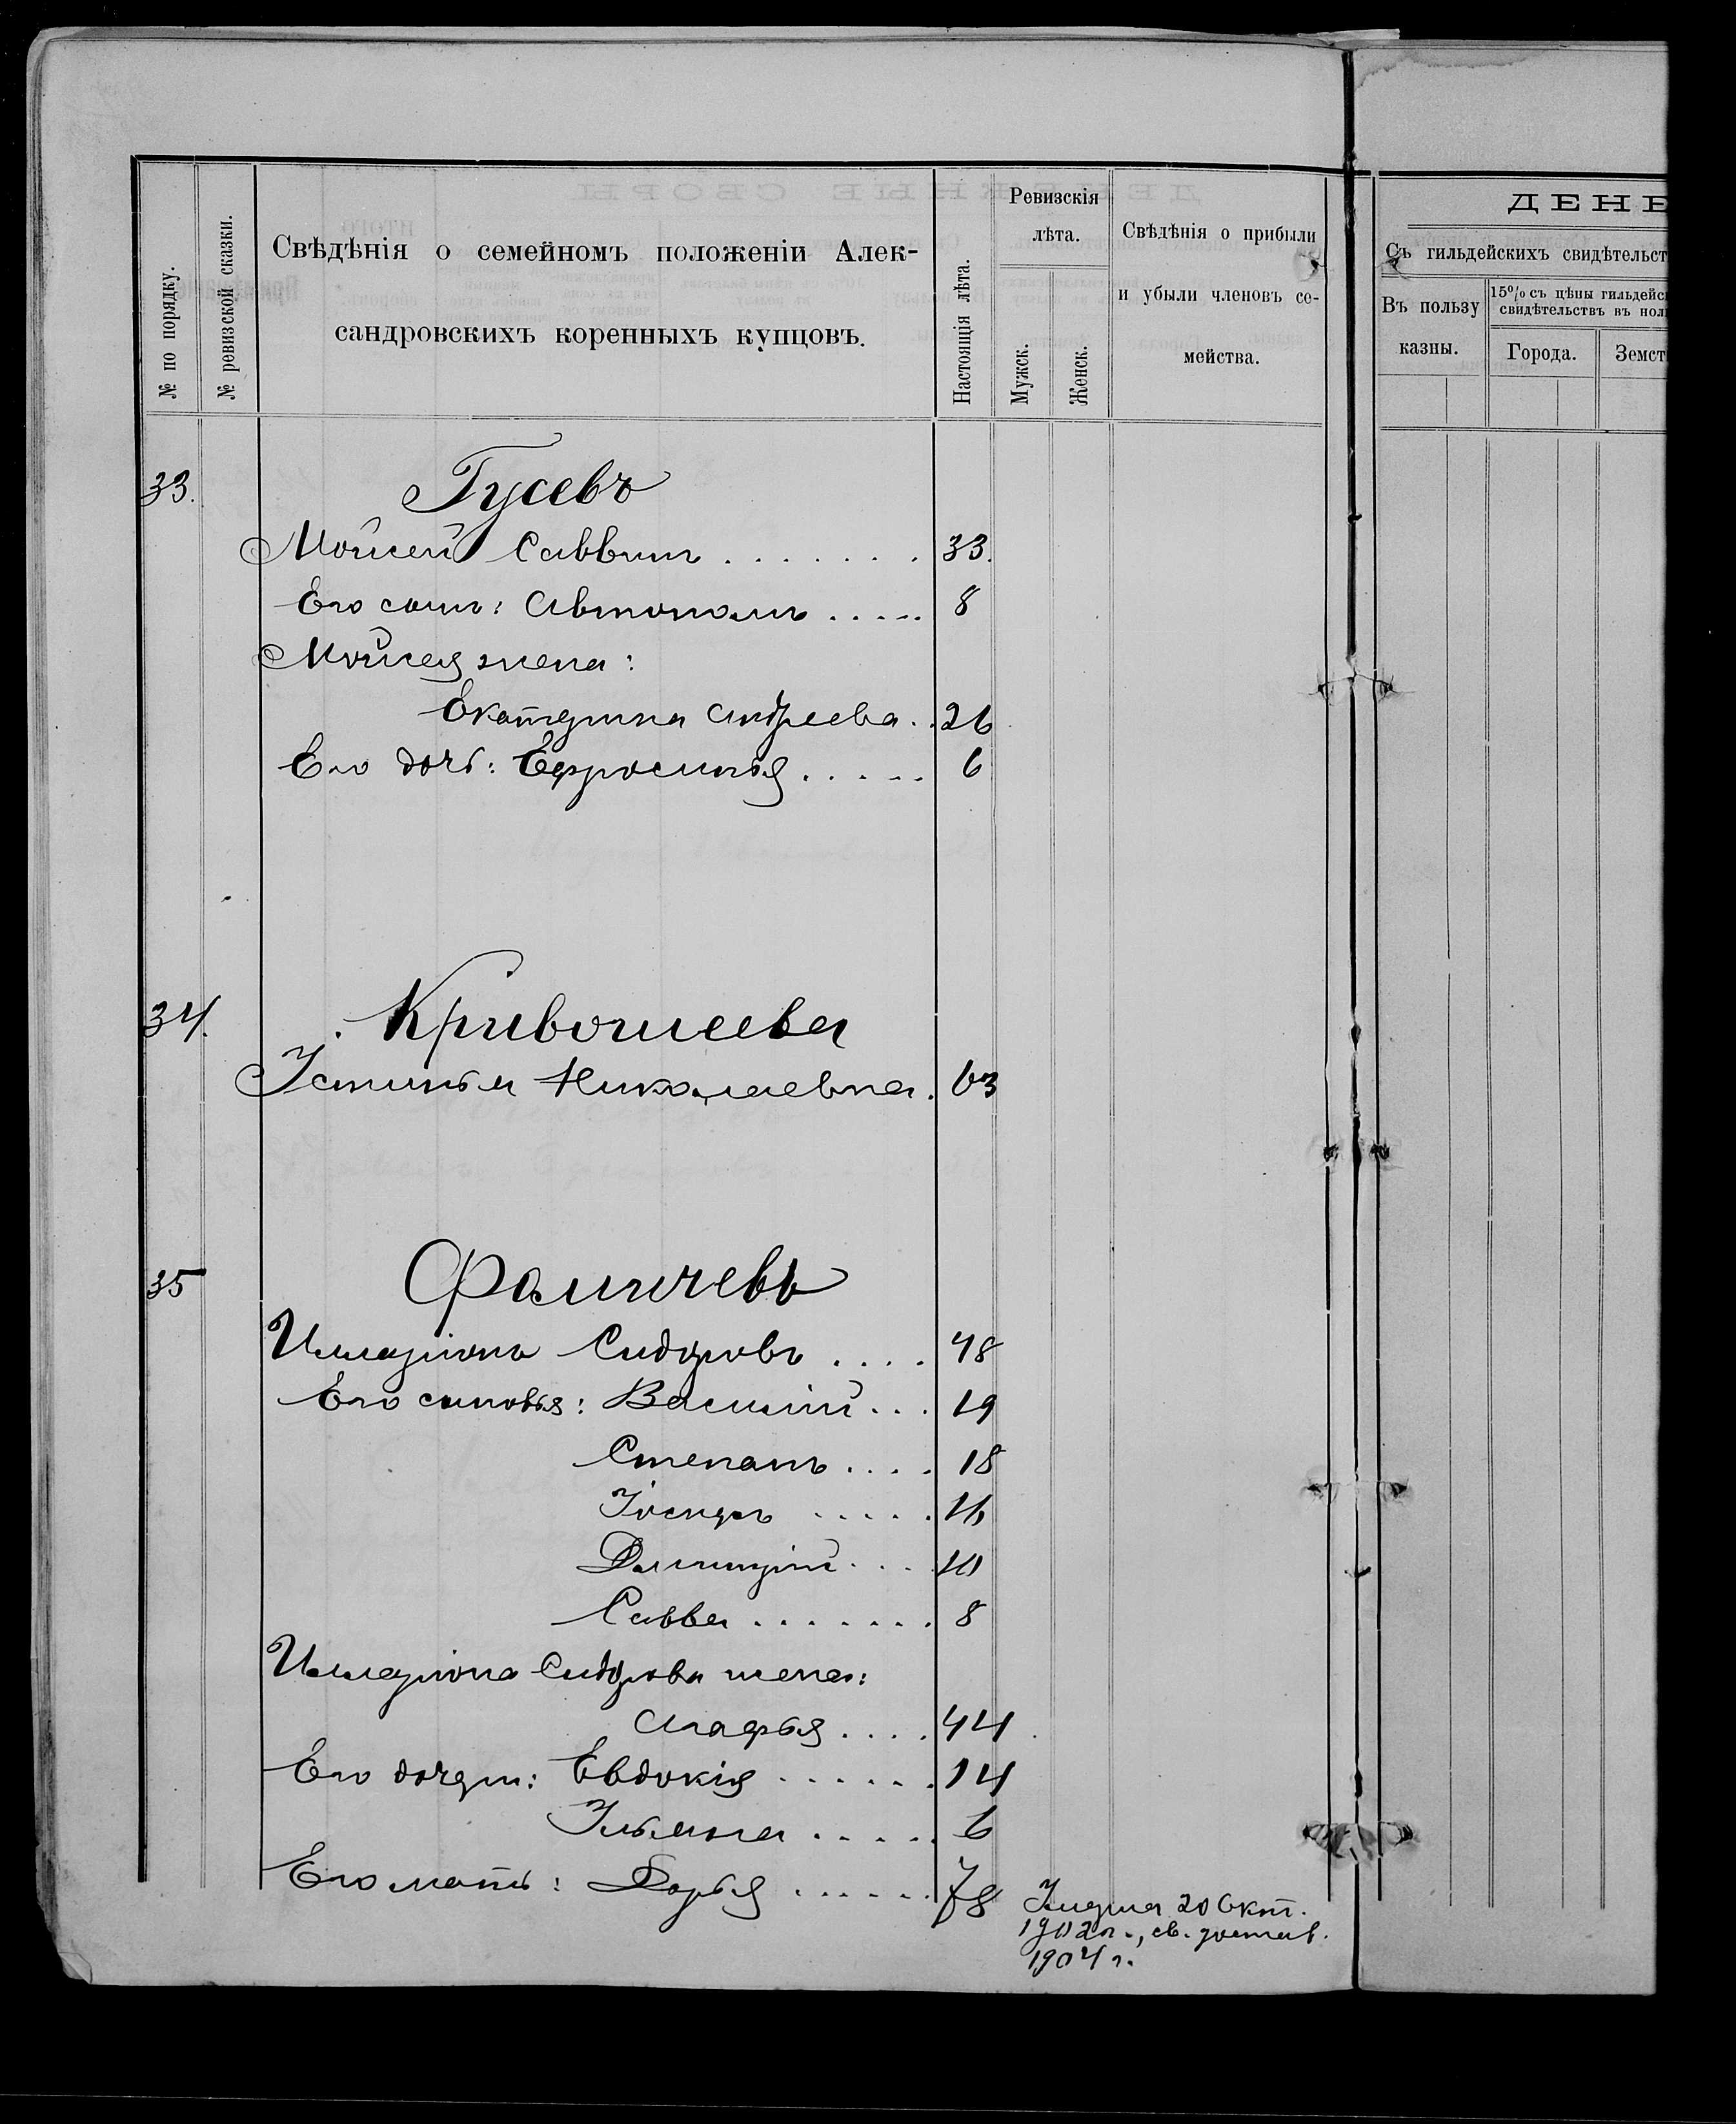 № по порядку.
№ ревизской сказки.
Свѣдѣнія о семейномъ положеніи Алек-
сандровскихъ коренныхъ купцовъ.
Настоящія лѣта.
Ревизскія
лѣта.
Мужск.
Женск.
Свѣдѣнія о прибыли
и убыли членовъ се-
мейства.
ДЕНЕ
Съ гильдейскихъ свидѣтельст
Въ пользу
казны.
15% съ цѣны гильдейс
свидѣтельствъ въ пол
Города.
Земст
33. Гусевъ
Мойсей Саввинъ . . . . . . . 33.
Его сынъ: Автономъ . . . . . 8
Мойсея жена:
Екатерина Андреева . . 26
Его дочь: Ефросинья . . . . . 6
34. Кривошеева
Устинья Николаевна . 63
35 Фомичевъ
Илларіонъ Сидоровъ . . . . 48
Его сыновья: Василій . . . 19
Степанъ . . . . 18
Іосифъ . . . . . 16
Дмитрій . . . 10
Савва . . . . . . . 8
Илларіона Сидорова жена:
Агафья . . . . 44
Его дочери: Евдокія . . . . . . 14
Ульяна . . . . . 6
Его мать: Дарья . . . . . . 78
Умерла 20 Окт.
1902 г., св. достав.
1904 г.